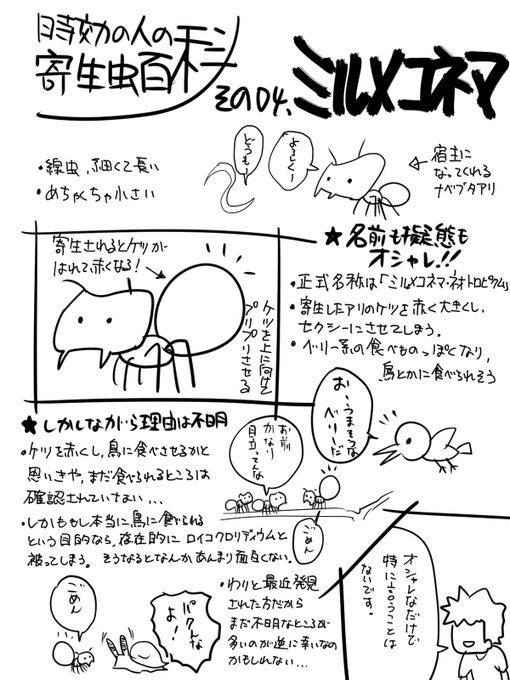 時効の人の
寄生虫百科
その04.
ミルメコネマ
・線虫、細くて長い
・めちゃくちゃ小さい
どうもー
よろしくー
宿主に
なってくれる
ナベブタアリ
寄生されるとケツが
はれて赤くなる!
ケツを上に向けて
プリプリさせる
★名前も擬態も
オシャレ!!
・正式名称は「ミルメコネマ・ネオトロピクム」
・寄生したアリのケツを赤く大きくし、
セクシーにさせてしまう。
・ベリー系の食べものっぽくなり、
鳥とかに食べられそう
お、うまそうな
ベリーだ
★しかしながら理由は不明
・ケツを赤くし、鳥に食べさせるかと
思いきや、まだ食べられるところは
確認されていない...
・しかももし本当に鳥に食べられる
という目的なら、存在的にロイコクロリディウムと
被ってしまう。そうなるとなんかあんまり面白くない。
お前
かなり
目立ってんな
ごめん
ごめん
パクんな
よ!
・わりと最近発見
された方だから
まだ不明なところが
多いのが逆に幸いなの
かもしれない...
オシャレなだけで
特に言うことは
ないです。